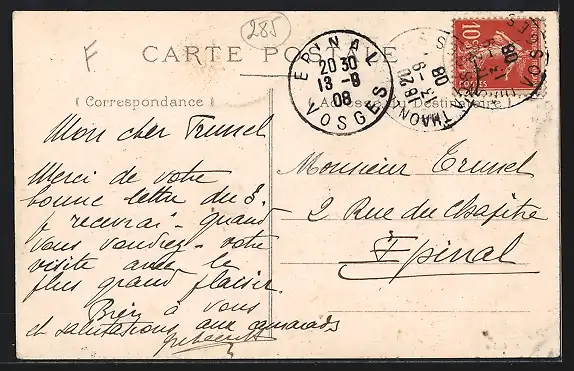 285
F
CARTE POSTALE
EPINAL
20 30
13 - 8
08
VOSGES
THAON
VOSGES
10
( Correspondance )
Adresse du Destinataire )
Mon cher Trunsel
Merci de votre
bonne lettre du 3.
je recevrai - quand
vous voudrez - votre
visite avec le
plus grand plaisir.
Bien à vous
et salutations aux camarades
Monsieur Trunsel
2 Rue du Chapitre
Epinal